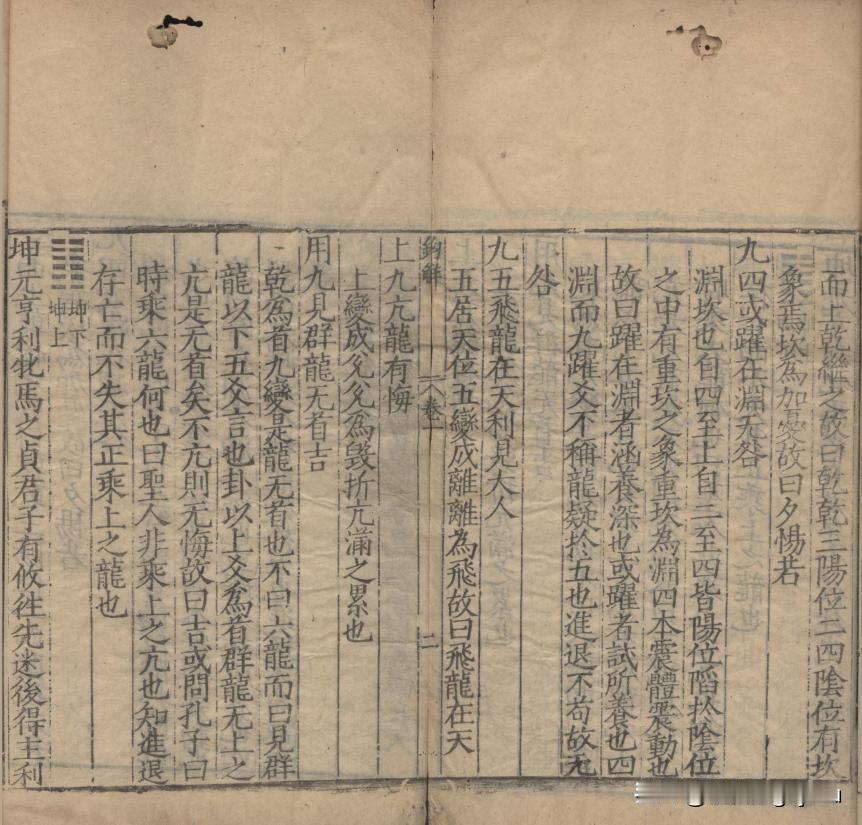 而上乾繼之故曰乾乾三陽位二四陰位有坎
象焉坎為加憂故曰夕惕若
九四或躍在淵无咎
淵坎也自四至上自二至四皆陽位陷扵陰位
之中有重坎之象重坎為淵四本震體震動也
故曰躍在淵者涵養深也或躍者試所養也四
淵而九躍爻不稱龍疑扵五也進退不苟故无
咎
九五飛龍在天利見大人
五居天位五變成離離為飛故曰飛龍在天
鈎解 卷一 二
上九亢龍有悔
上變成兊兊爲毀折亢滿之累也
用九見群龍无首吉
乾爲首九變是龍无首也不曰六龍而曰見群
龍以下五爻言也卦以上爻爲首群龍无上之
亢是无首矣不亢則无悔故曰吉或問孔子曰
時乘六龍何也曰聖人非乘上之亢也知進退
存亡而不失其正乘上之龍也
䷁ 坤下
坤上
坤元亨利牝馬之貞君子有攸徃先迷後得主利